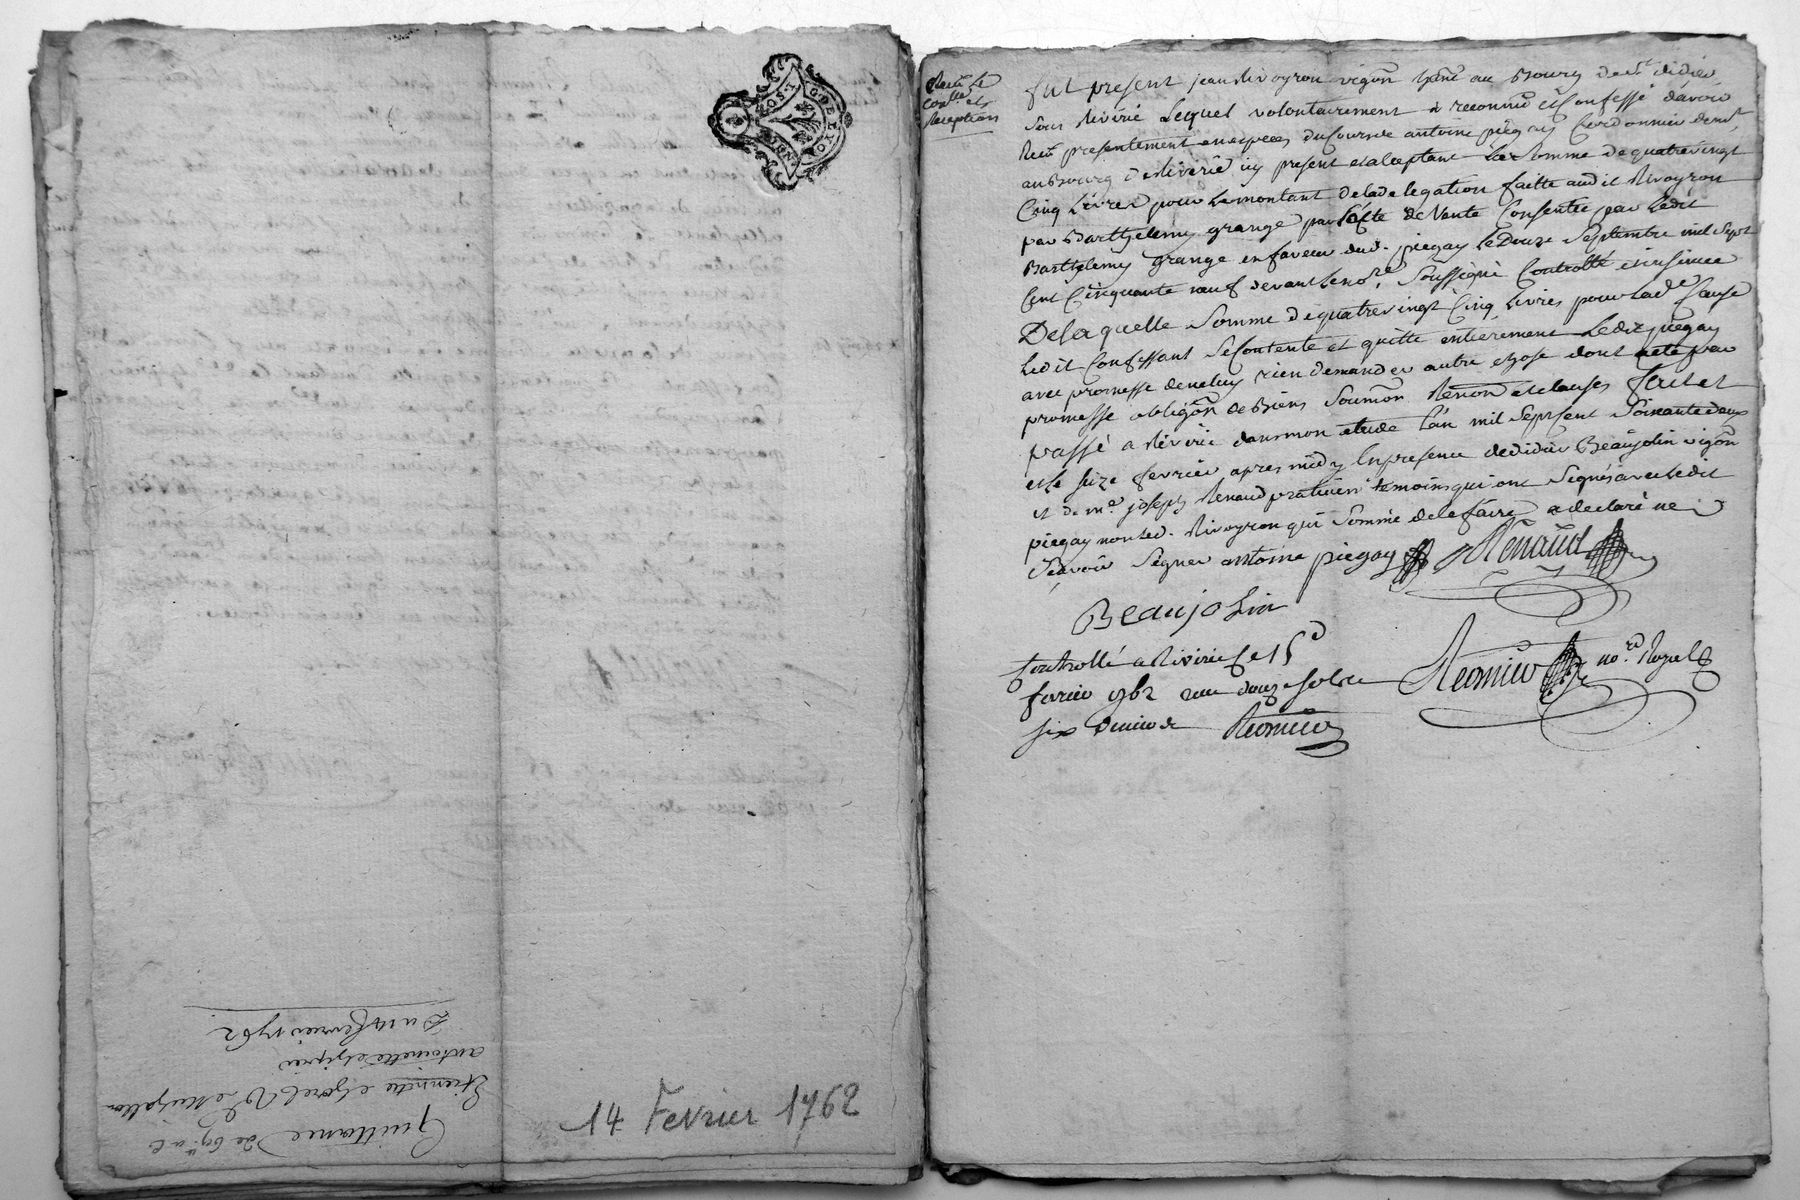 GDE LYON
14 Fevrier 1762
Quittance de 69# a s
Etiennette chorel Ve
antoinette
Du 14 fevrier 1762
Reception
fut present jean Rivoyron vigon habt au Bourg de st didier
sous Riverie Lequel volontairement a reconnu et Confessé d'avoir
Reçu presentement en especes du sieur antoine piegay Cordonnier demt
au Bourg de Riverie icy present et acceptant La somme de quatre vingt
Cinq Livres pour Le montant de la delegation faitte audit Rivoyron
par Barthelemy grange par l'acte de Vente Consentie par Ledit
Barthelemy grange en faveur dud. piegay Le Douze Septembre mil Sept
Cent Cinquante neuf devant Le nore Soussigné Controllé et insinué
De laquelle Somme de quatre vingt Cinq Livres pour lade Cause
Ledit Confessant Se Contente et quitte entierement Ledit piegay
avec promesse de ne luy rien demander autre chose dont acte par
promesse obligôn de Biens Soumôn Renôn et clauses fait et
passé a Riverie dans mon etude L'an mil Sept Cent Soixante deux
et le seize fevrier apres midy En presence de didier Beaujolin vigon
et de me joseph Renaud praticien temoins qui ont Signés avec Ledit
piegay non led. Rivoyron qui Sommé de le faire a declaré ne
Sçavoir Signer antoine piegay Renaud
Beaujolin
Controllé a Riverie Le 15
fevrier 1762 reçu douze sols
six deniers
no.re Royal